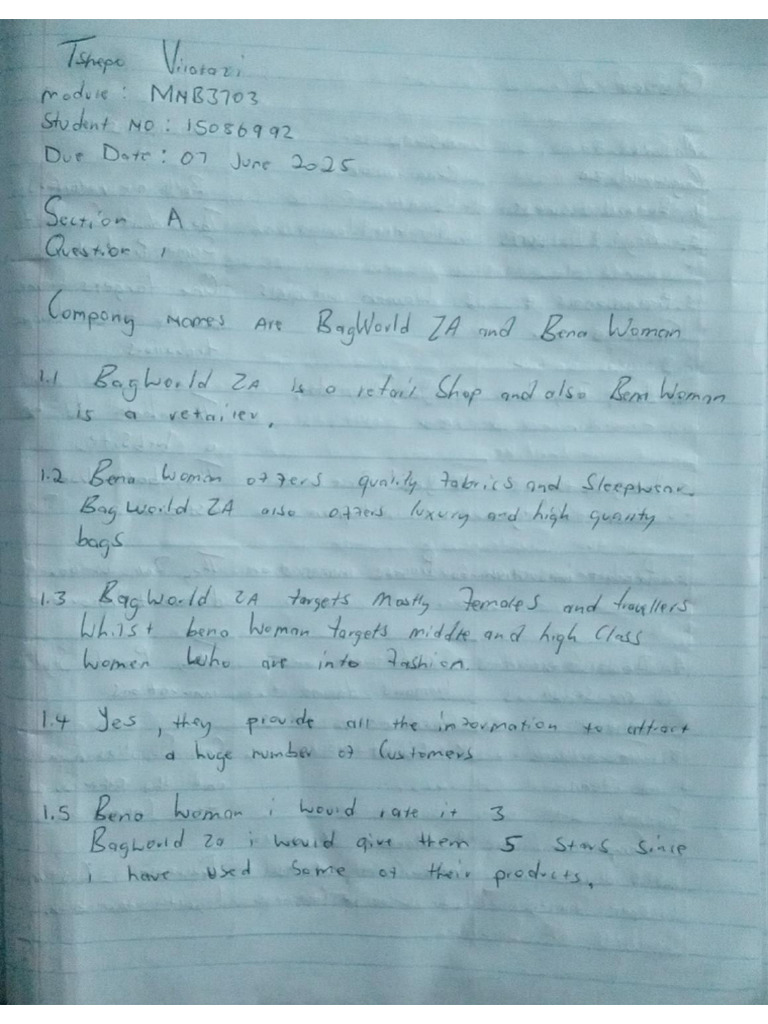 Tshepo
Module: MNB3703
Student NO: 15086992
Due Date: 07 June 2025
Section A
Question 1
Company Names Are BagWorld ZA and Bena Woman
1.1 BagWorld ZA is a retail Shop and also Bena Woman
is a retailer.
1.2 Bena Woman offers quality fabrics and Sleepwear.
BagWorld ZA also offers luxury and high quality
bags
1.3 BagWorld ZA targets mostly females and travellers
Whilst bena Woman targets middle and high Class
Women Who are into fashion.
1.4 Yes, they provide all the information to attract
a huge number of Customers
1.5 Bena Woman i would rate it 3
BagWorld Za i would give them 5 stars since
i have used some of their products.